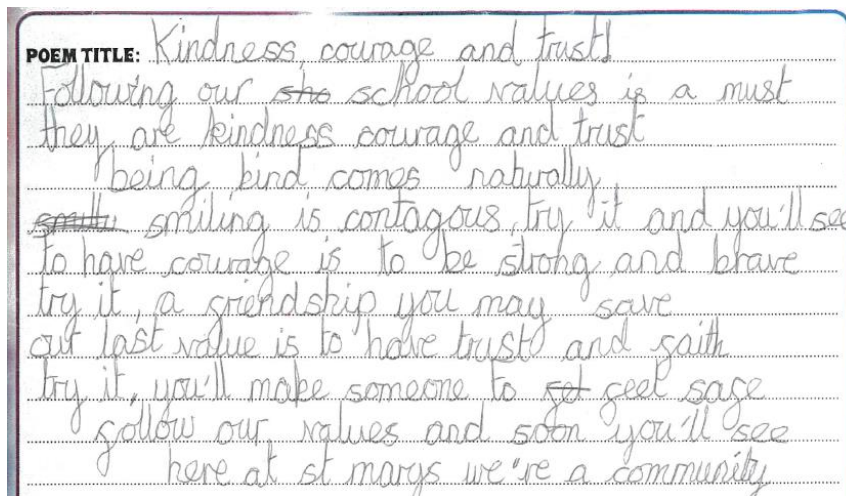 POEM TITLE: Kindness, courage and trust!
Following our sho school values is a must
they are kindness courage and trust
being kind comes naturally
smiling is contagous, try it and you'll see
to have courage is to be strong and brave
try it, a friendship you may save
our last value is to have trust and faith
try it, you'll make someone to fel feel safe
follow our values and soon you'll see
here at st marys we're a community